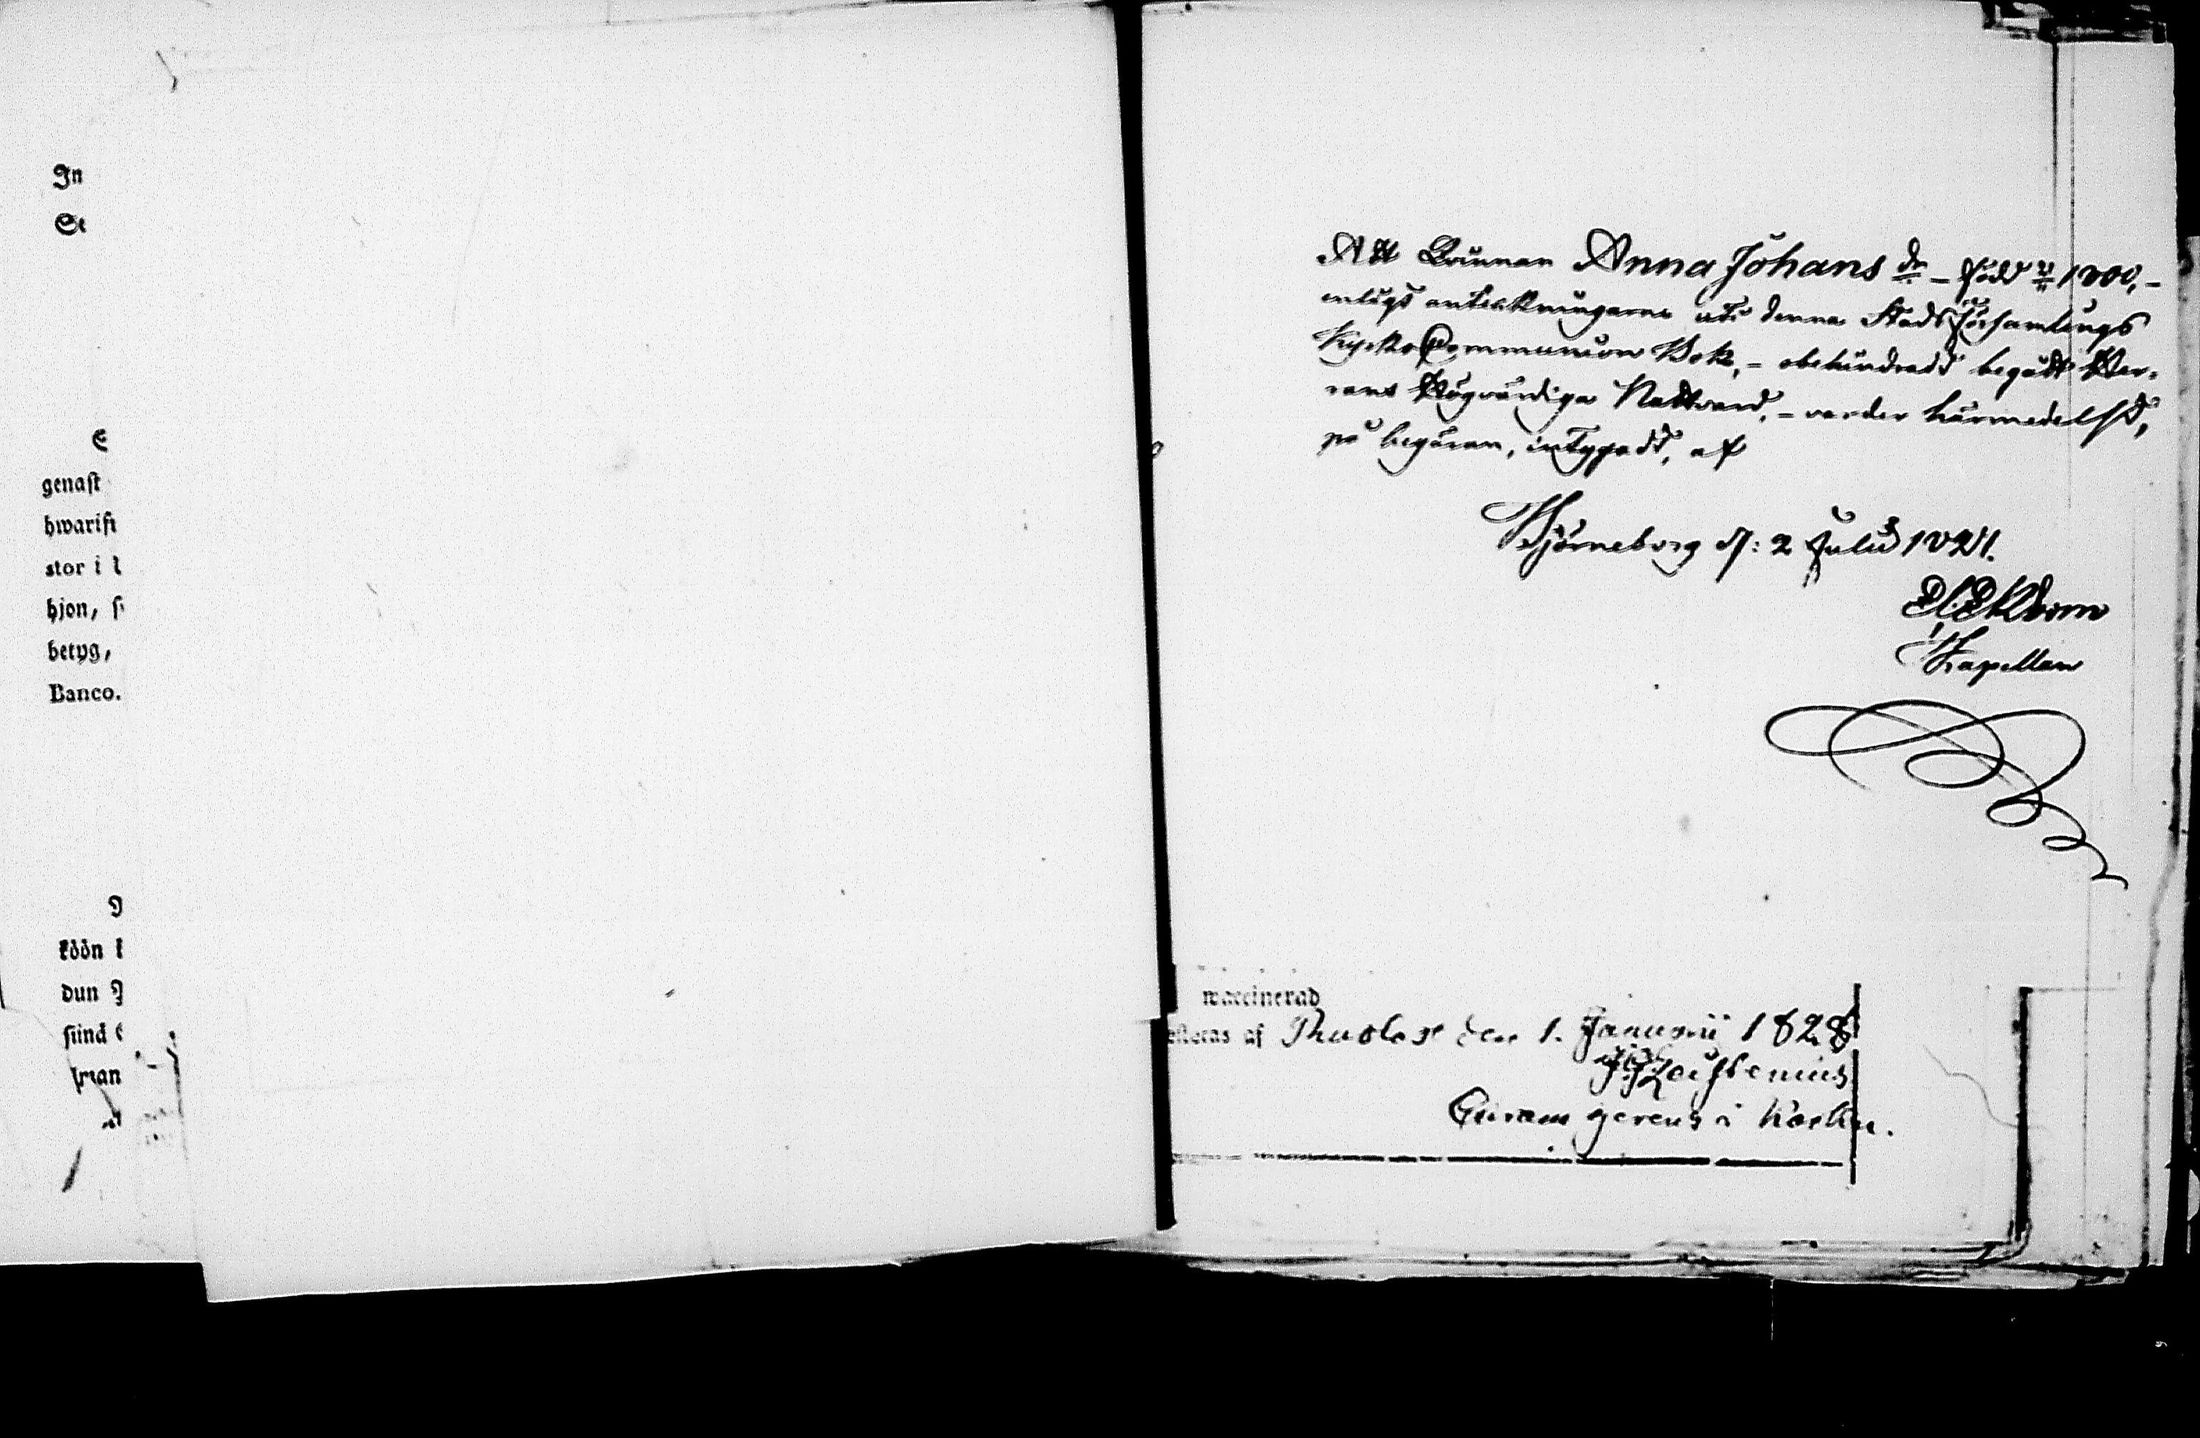 In
Se
E
genast
hwarist
stor i l
hjon, s
betyg,
Banco.
köön k
dun J
siinä e
Att Qvinnan Anna Johans dr – född år 1800, –
enligt anteckningarne uti denna Stadsförsamlings
Kyrko Communion Bok, – obehindradt begått Her-
rans Högvärdiga Nattvard, – varder härmedelst,
på begäran, intygadt, af
Björneborg d: 2 Julii 1821.
Ekblom
Kapellan
waccinerad
esteras af den 1. Januarii 1828
Curam gerens i